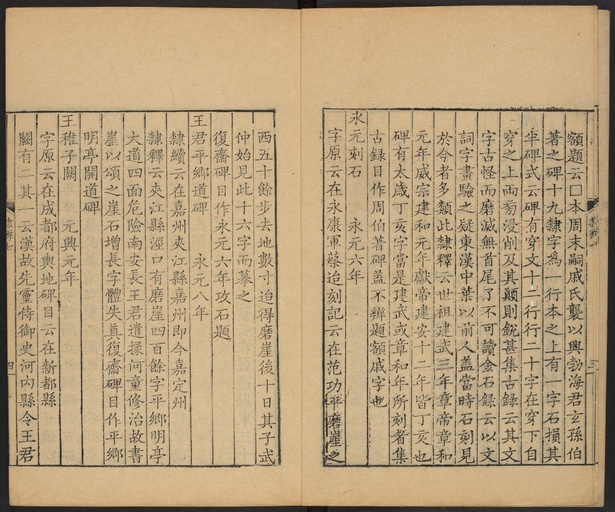 額題云□本周末嗣戚氏襲以興勃海君玄孫伯
著之碑十九隸字為一行本之上有一字石損其
半碑式云碑有穿文十二行行二十字在穿下自
穿之上兩旁浸削及其顛則銳甚集古錄云其文
字古怪而磨滅無首尾了不可讀金石錄云以文
詞字畫驗之疑東漢中葉以前人蓋當時石刻見
於今者多類此隸釋云世祖建武三年章帝章和
元年威宗建和元年獻帝建安十二年皆丁亥也
碑有太歲丁亥字當是建武或章和年所刻者集
古錄目作周伯著碑蓋不辨題額戚字也
永元刻石 永元六年
字原云在永康軍蔡迨刻記云在范功平磨崖之
西五十餘步去地數寸迨得磨崖後十日其子武
仲始見此十六字而摹之
復齋碑目作永元六年攻石題
王君平鄉道碑 永元八年
隸續云在嘉州夾江縣嘉州即今嘉定州
隸釋云夾江縣涇口有磨崖四百餘字平鄉明亭
大道四面危險南安長王君遣掾何童修治故書
崖以頌之崖石增長字體失真復齋碑目作平鄉
明亭開道碑
王稚子闕 元興元年
字原云在成都府輿地碑目云在新都縣
闕有二其一云漢故先靈侍御史河內縣令王君
隸辨七
四